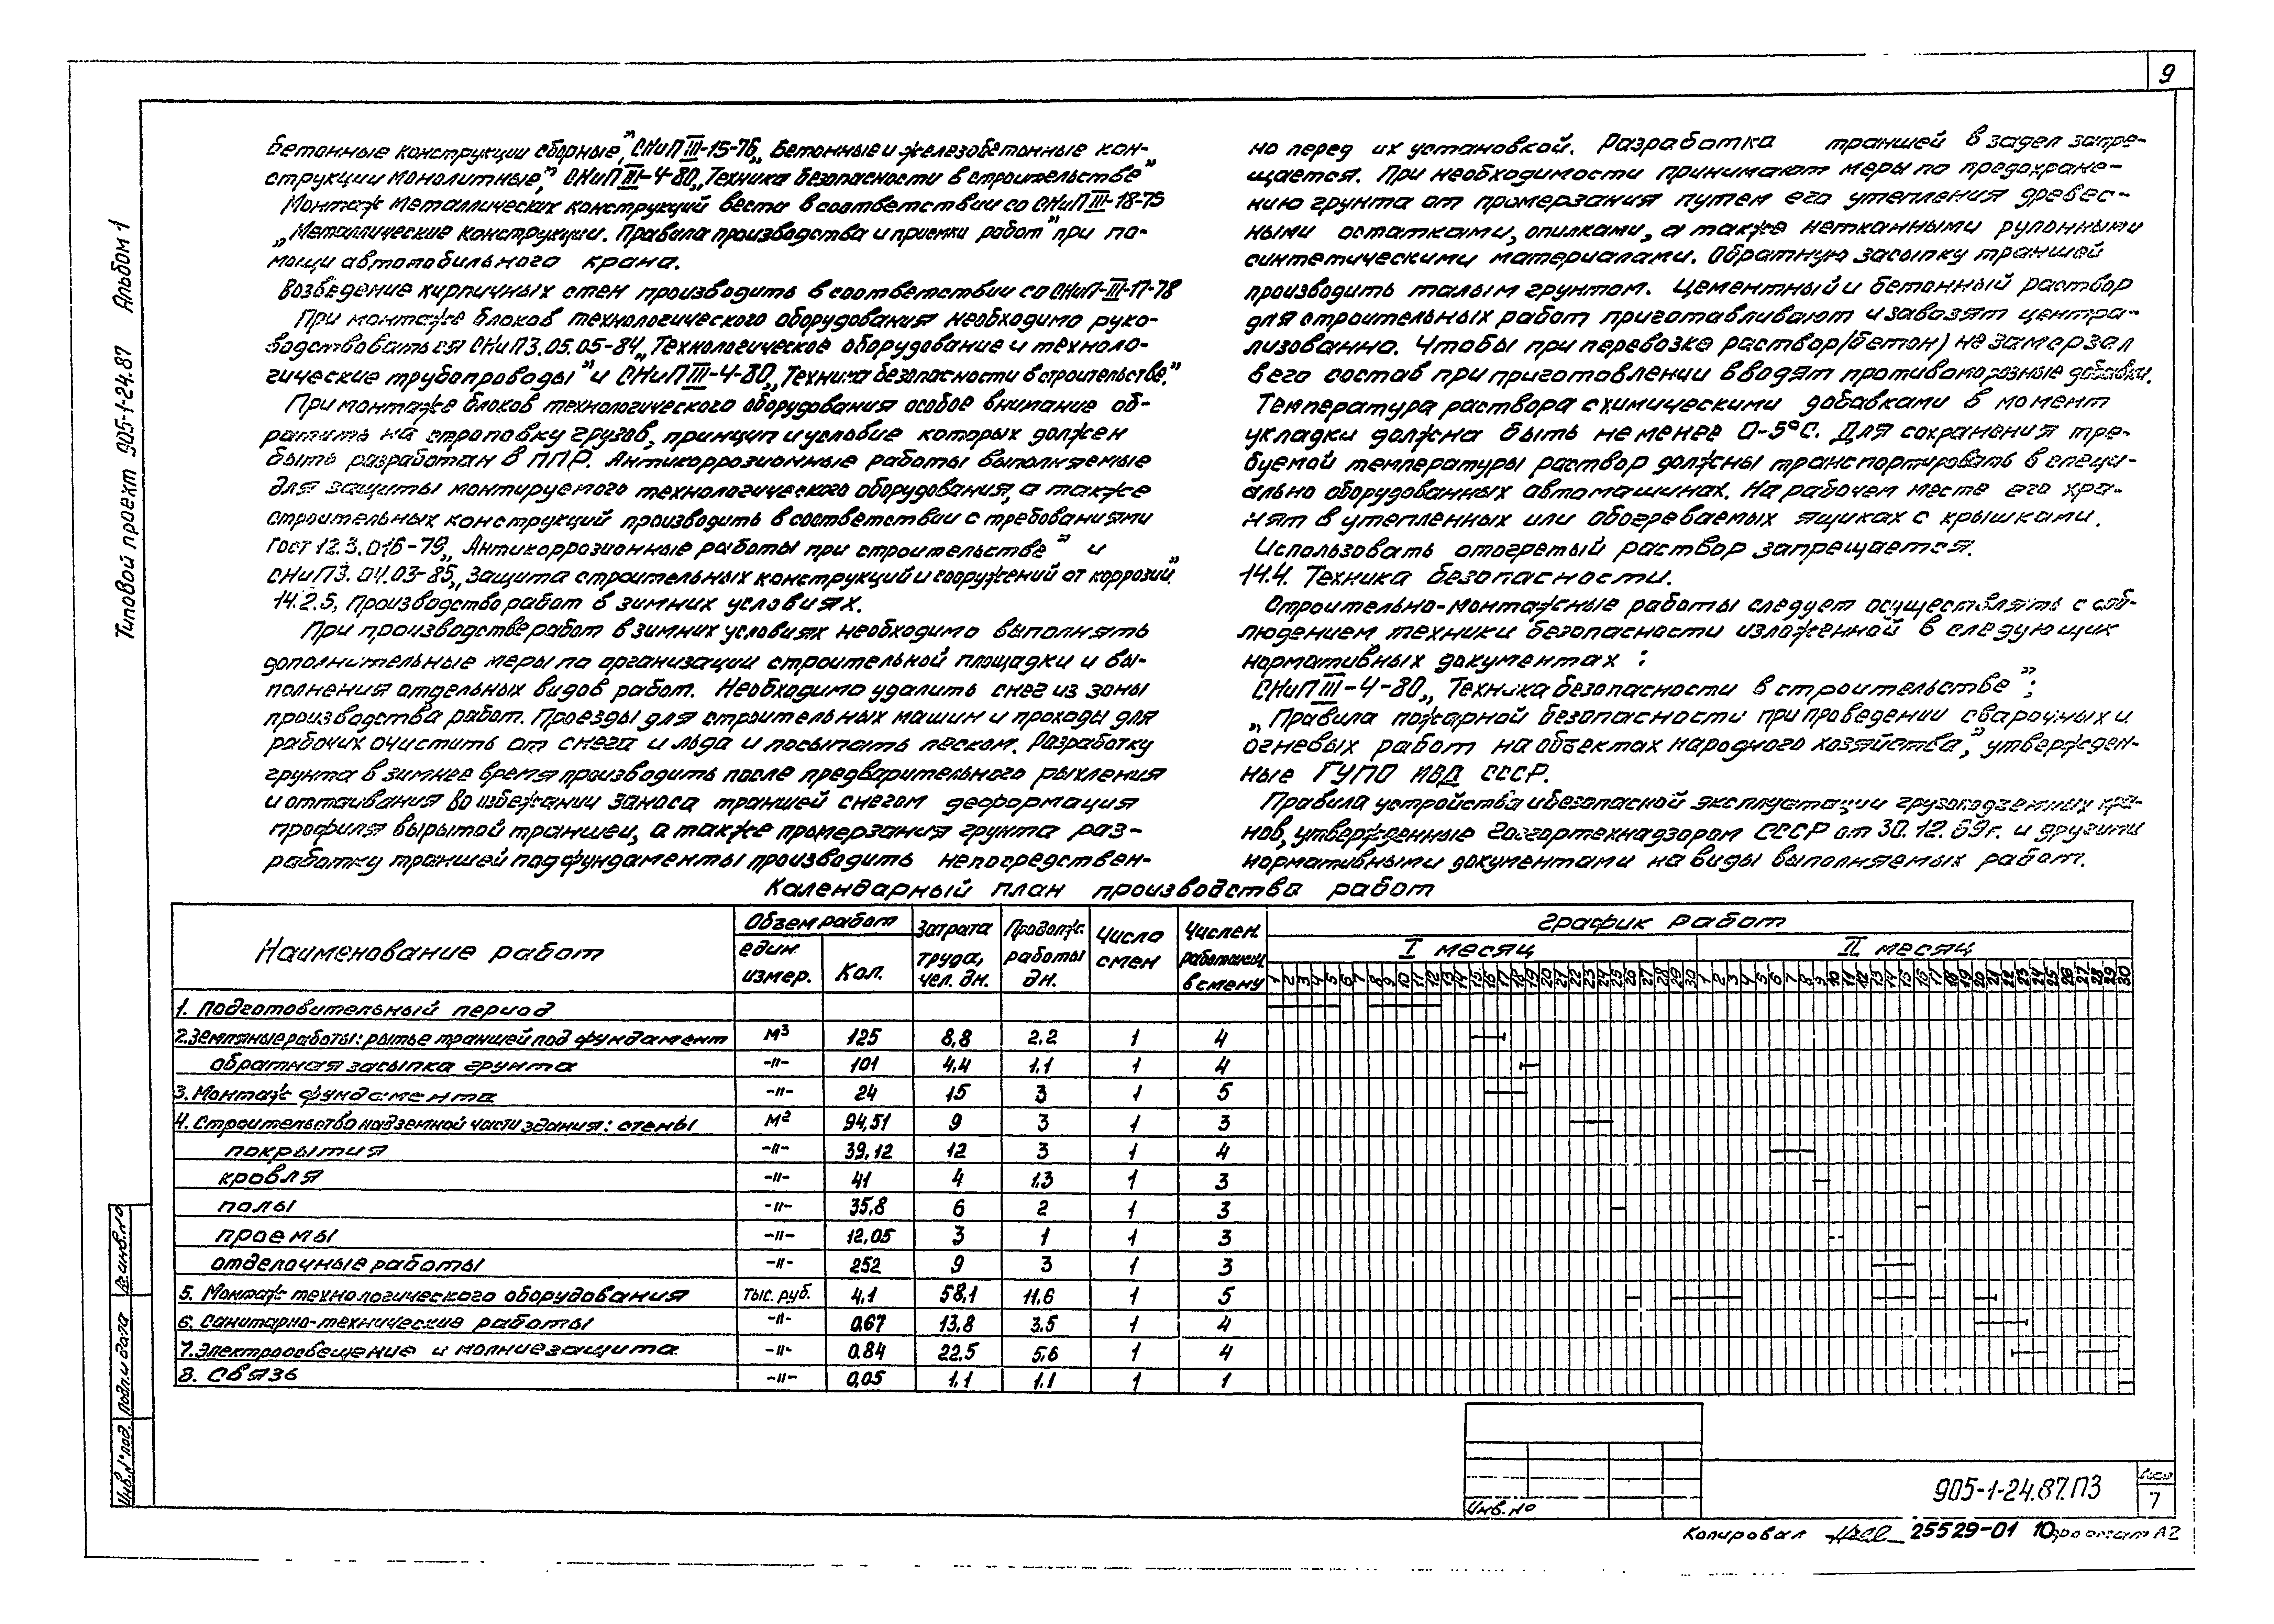 9
Типовой проект 905-1-24.87 Альбом 1
бетонные конструкции сборные", СНиП III-15-76 „Бетонные и железобетонные кон-
струкции монолитные", СНиП III-4-80 „Техника безопасности в строительстве"
Монтаж металлических конструкций вести в соответствии со СНиП III-18-75
„Металлические конструкции. Правила производства и приемки работ" при по-
мощи автомобильного крана.
Возведение кирпичных стен производить в соответствии со СНиП-III-17-78
При монтаже блоков технологического оборудования необходимо руко-
водствоваться СНиП 3.05.05-84 „Технологическое оборудование и техноло-
гические трубопроводы" и СНиП III-4-80 „Техника безопасности в строительстве."
При монтаже блоков технологического оборудования особое внимание об-
ратить на строповку грузов, принцип и условие которых должен
быть разработан в ППР. Антикоррозионные работы выполняемые
для защиты монтируемого технологического оборудования, а также
строительных конструкций производить в соответствии с требованиями
ГОСТ 12.3.016-79 „Антикоррозионные работы при строительстве" и
СНиП 3.04.03-85 „Защита строительных конструкций и сооружений от коррозий".
14.2.5. Производство работ в зимних условиях.
При производстве работ в зимних условиях необходимо выполнять
дополнительные меры по организации строительной площадки и вы-
полнения отдельных видов работ. Необходимо удалить снег из зоны
производства работ. Проезды для строительных машин и проходы для
рабочих очистить от снега и льда и посыпать песком. Разработку
грунта в зимнее время производить после предварительного рыхления
и оттаивания во избежании заноса траншей снегом деформация
профиля вырытой траншеи, а также промерзания грунта раз-
работку траншей под фундаменты производить непосредствен-
но перед их установкой. Разработка траншей в задел запре-
щается. При необходимости принимают меры по предохране-
нию грунта от промерзания путем его утепления древес-
ными остатками, опилками, а также нетканными рулонными
синтетическими материалами. Обратную засыпку траншей
производить талым грунтом. Цементный и бетонный раствор
для строительных работ приготавливают и завозят центра-
лизованно. Чтобы при перевозке раствор (бетон) не замерзал
в его состав при приготовлении вводят противоморозные добавки.
Температура раствора с химическими добавками в момент
укладки должна быть не менее 0-5°С. Для сохранения тре-
буемой температуры раствор должны транспортировать в специ-
ально оборудованных автомашинах. На рабочем месте его хра-
нят в утепленных или обогреваемых ящиках с крышками.
Использовать отогретый раствор запрещается.
14.4. Техника безопасности.
Строительно-монтажные работы следует осуществлять с соб-
людением техники безопасности изложенной в следующих
нормативных документах:
СНиП III-4-80 „Техника безопасности в строительстве";
„Правила пожарной безопасности при проведении сварочных и
огневых работ на объектах народного хозяйства", утвержден-
ные ГУПО МВД СССР.
Правила устройства и безопасной эксплуатации грузоподъемных кра-
нов, утвержденные Госгортехнадзором СССР от 30.12.69г. и другими
нормативными документами на виды выполняемых работ.
Календарный план производства работ
Наименование работ Объем работ един. измер. Кол. Затрата труда, чел. дн. Продолж. работы дн. Число смен Числен. работающ. в смену График работ
I месяц II месяц
1 2 3 4 5 6 7 8 9 10 11 12 13 14 15 16 17 18 19 20 21 22 23 24 25 26 27 28 29 30 1 2 3 4 5 6 7 8 9 10 11 12 13 14 15 16 17 18 19 20 21 22 23 24 25 26 27 28 29 30
1. Подготовительный период
2. Земляные работы: рытье траншей под фундамент м3 125 8,8 2,2 1 4
обратная засыпка грунта -"- 101 4,4 1,1 1 4
3. Монтаж фундамента -"- 24 15 3 1 5
4. Строительство надземной части здания: стены м2 94,51 9 3 1 3
покрытия -"- 39,12 12 3 1 4
кровля -"- 41 4 1,3 1 3
полы -"- 35,8 6 2 1 3
проемы -"- 12,05 3 1 1 3
отделочные работы -"- 252 9 3 1 3
5. Монтаж технологического оборудования тыс. руб. 4,1 58,1 11,6 1 5
6. Санитарно-технические работы -"- 0,67 13,8 3,5 1 4
7. Электроосвещение и молниезащита -"- 0,84 22,5 5,6 1 4
8. Связь -"- 0,05 1,1 1,1 1 1
Инв. № подл. Подп. и дата Вз. инв. №
Инв. №
905-1-24.87.ПЗ
Лист
7
Копировал 25529-01 10 формат А2